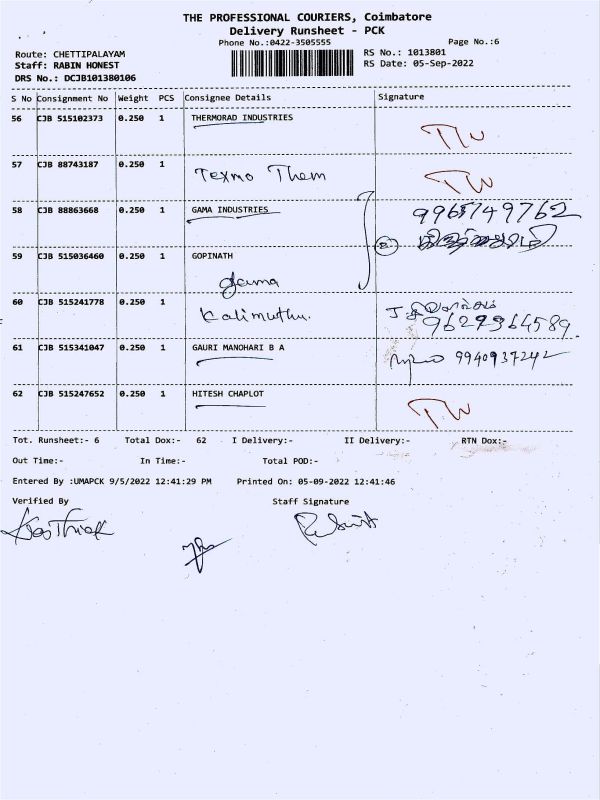 THE PROFESSIONAL COURIERS, Coimbatore
Delivery Runsheet - PCK
Phone No.:0422-3505555 Page No.:6
Route: CHETTIPALAYAM RS No.: 1013801
Staff: RABIN HONEST RS Date: 05-Sep-2022
DRS No.: DCJB101380106
S No Consignment No Weight PCS Consignee Details Signature
56 CJB 515102373 0.250 1 THERMORAD INDUSTRIES
57 CJB 88743187 0.250 1
Texmo Them
58 CJB 88863668 0.250 1 GAMA INDUSTRIES 9965749762
59 CJB 515036460 0.250 1 GOPINATH
Gama
60 CJB 515241778 0.250 1 Kalimuthu. 9629964589.
61 CJB 515341047 0.250 1 GAURI MANOHARI B A 9940937242
62 CJB 515247652 0.250 1 HITESH CHAPLOT T.W
Tot. Runsheet:- 6 Total Dox:- 62 I Delivery:- II Delivery:- RTN Dox:-
Out Time:- In Time:- Total POD:-
Entered By :UMAPCK 9/5/2022 12:41:29 PM Printed On: 05-09-2022 12:41:46
Verified By Staff Signature